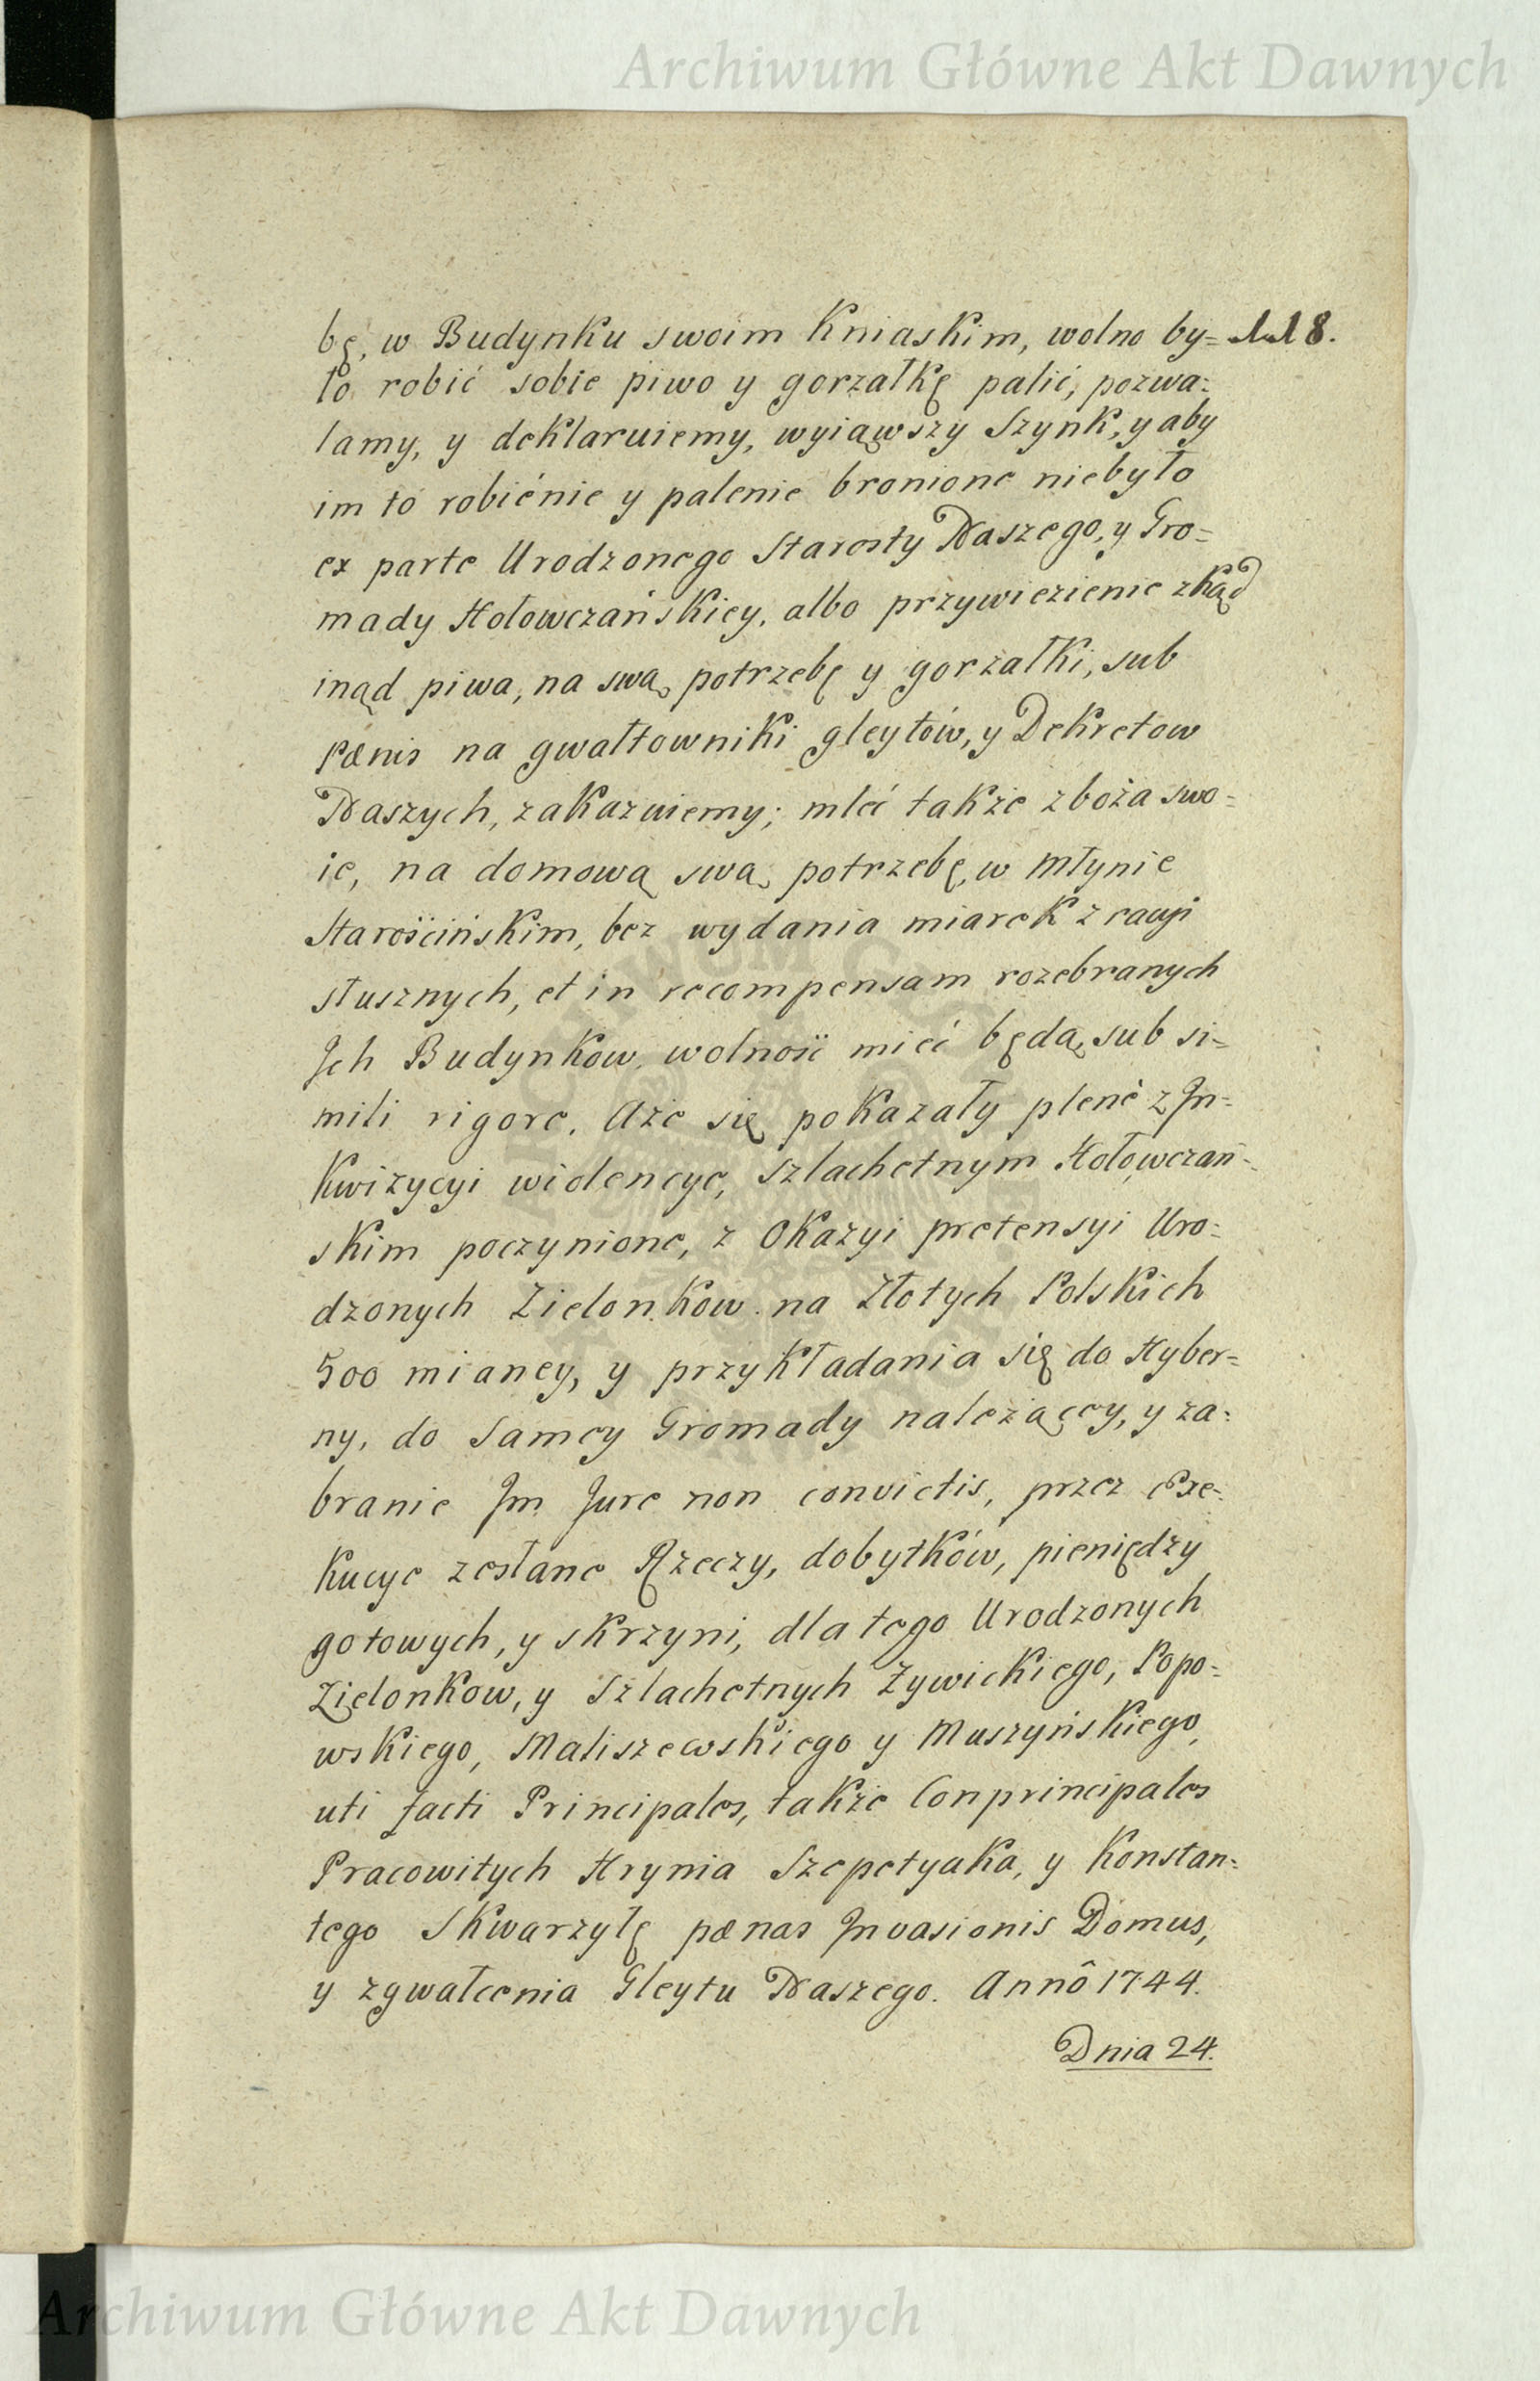 Archiwum Główne Akt Dawnych
bę, w Budynku swoim Kniaskim, wolno by= 118.
ło robić sobie piwo y gorzałkę palić, pozwa=
lamy, y deklaruiemy, wyiąwszy Szynk, y aby
im to robićnie y palenie bronione niebyło
ex parte Urodzonego Starosty Naszego, y Gro=
mady Hołowczańskiey, albo przywiezienie zkąd
inąd piwa, na swą potrzebę y gorzałki, sub
Pænis na gwałtowniki gleytów, y Dekretow
Naszych, zakazuiemy; mleć także zboża swo=
ie, na domową swą potrzebę, w Młynie
Starościńskim, bez wydania miarek z racyi
słusznych, et in recompensam rozebranych
Ich Budynkow wolność mieć będą, sub si=
mili rigore. Aże się pokazały plenè z In=
kwizycyi wiolencye, Szlachetnym Hołowczań=
skim poczynione, z Okazyi pretensyi Uro=
dzonych Zielonkow na Złotych Polskich
500 mianey, y przykładania się do Hyber=
ny, do Samey Gromady należącey, y za=
branie Im Jure non convictis, przez Exe=
kucye zesłane Rzeczy, dobytków, pieniędzy
gotowych, y skrzyni, dla tego Urodzonych
Zielonkow, y Szlachetnych Żywickiego, Popo=
wskiego, Maliszewskiego y Muszyńskiego,
uti facti Principales, także Conprincipales
Pracowitych Hrynia Szepetyaka, y Konstan=
tego Skwarzyłę pænas Invasionis Domus,
y zgwałcenia Gleytu Naszego. Annô 1744.
Dnia 24.
Archiwum Główne Akt Dawnych